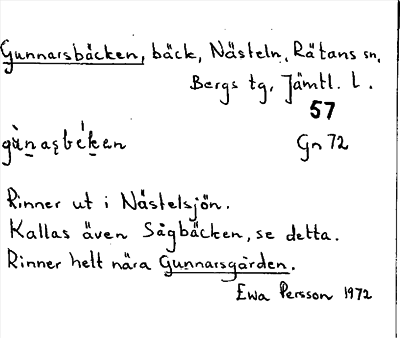 Gunnarsbäcken, bäck, Nästeln, Rätans sn,
Bergs tg, Jämtl. l.
57
Gn 72
Rinner ut i Nästelsjön.
Kallas även Sågbäcken, se detta.
Rinner helt nära Gunnarsgården.
Ewa Persson 1972